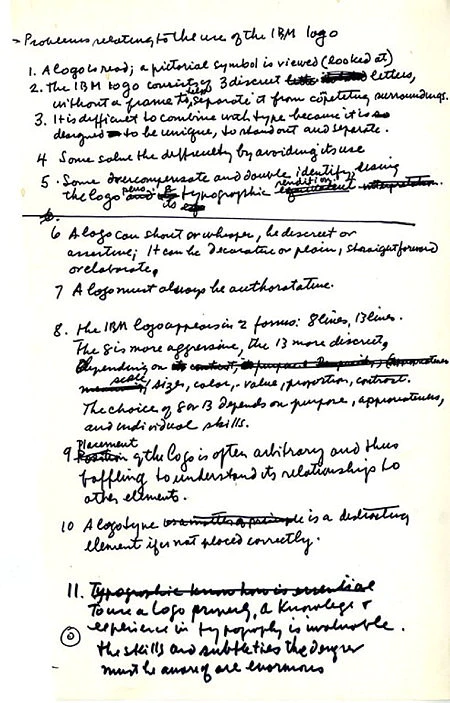 - Problems relating to the use of the IBM logo
1. A logo is read; a pictorial symbol is viewed (looked at)
2. The IBM logo consists of 3 discreet letters,
without a frame to help separate it from competing surroundings.
3. It is difficult to combine with type because it is so
designed to be unique, to stand out and separate.
4 Some solve the difficulty by avoiding its use
5. Some overcompensate and double identify, using
the logo plus a typographic rendition
6 A logo can shout or whisper, be discreet or
assertive; It can be decorative or plain, straightforward
or elaborate,
7 A logo must always be authoratative.
8. The IBM logo appears in 2 forms: 8 lines, 13 lines.
The 8 is more aggressive, the 13 more discreet,
depending on
scale, sizes, color, value, proportion, contrast.
The choice of 8 or 13 depends on purpose, appropriateness,
and individual skills.
9 Placement of the logo is often arbitrary and thus
baffling to understand its relationships to
other elements.
10 A logotype is a distracting
element if not placed correctly.
11. Typographic know how is essential
To use a logo properly, a knowledge &
experience in typography is invaluable.
the skills and subtleties the designer
must be aware of are enormous